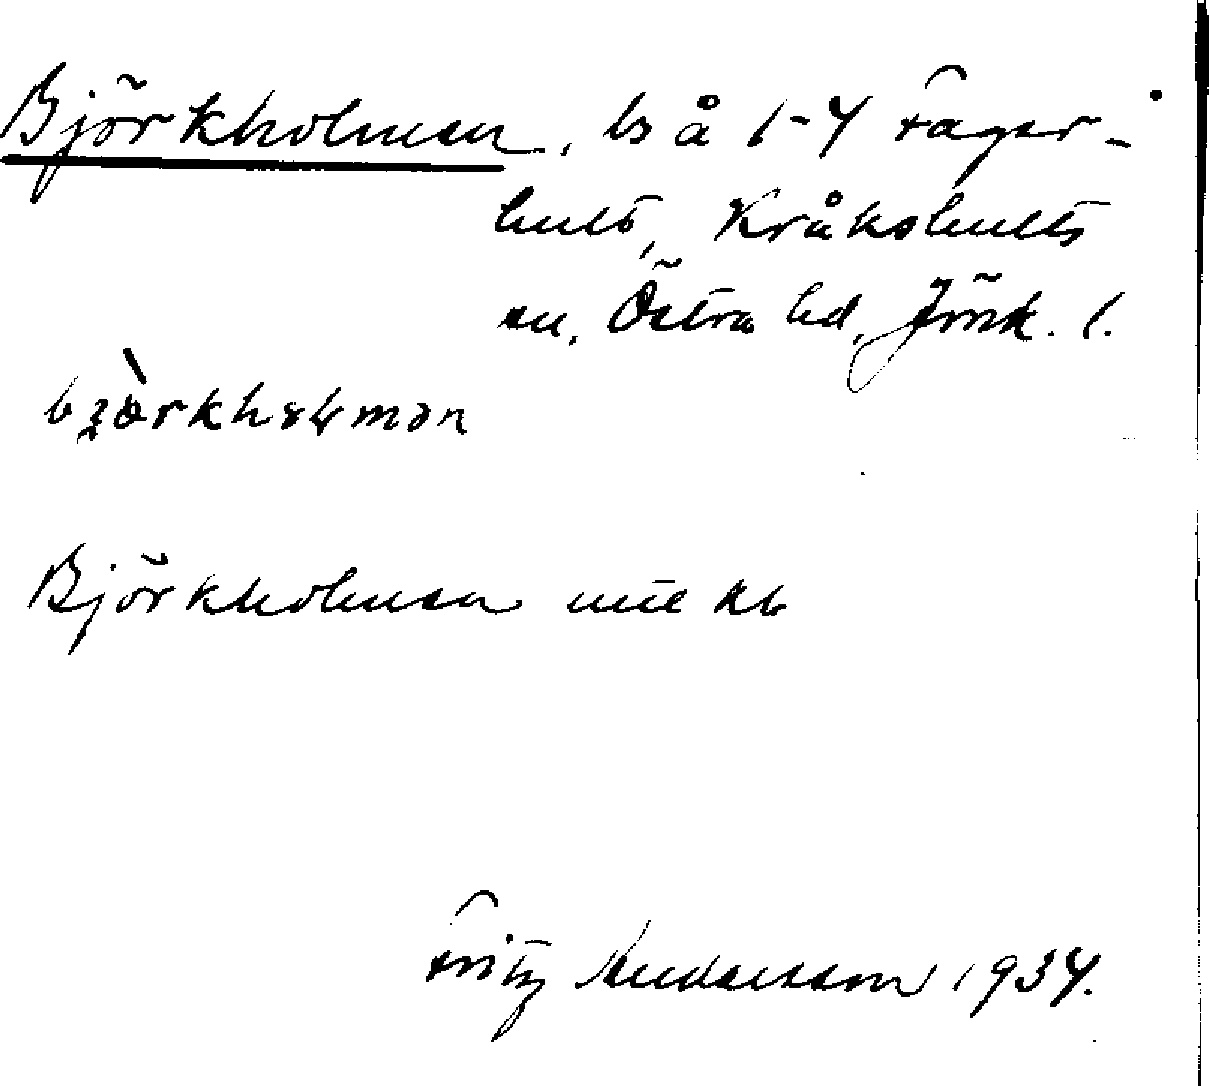 Björkholmen, ls å 1-4 Fager-
hult, Kråkshults
sn, Östra hd, Jönk. l.
Björkholmen mtl kb
Fritz Andersson 1934.